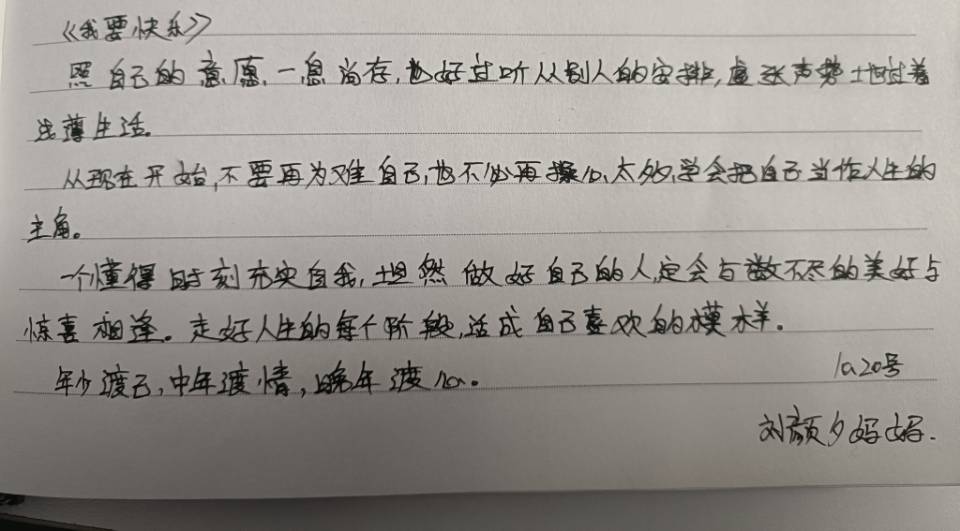 《我要快乐》
照自己的意愿,一息尚存,也好过听从别人的安排,虚张声势地过着
浅薄生活。
从现在开始,不要再为难自己,也不必再操心太多,学会把自己当作人生的
主角。
一个懂得时刻充实自我,坦然做好自己的人,定会与数不尽的美好与
惊喜相逢。走好人生的每个阶段,活成自己喜欢的模样。
年少渡己,中年渡情,晚年渡心。
10.20号
刘颜夕妈妈.